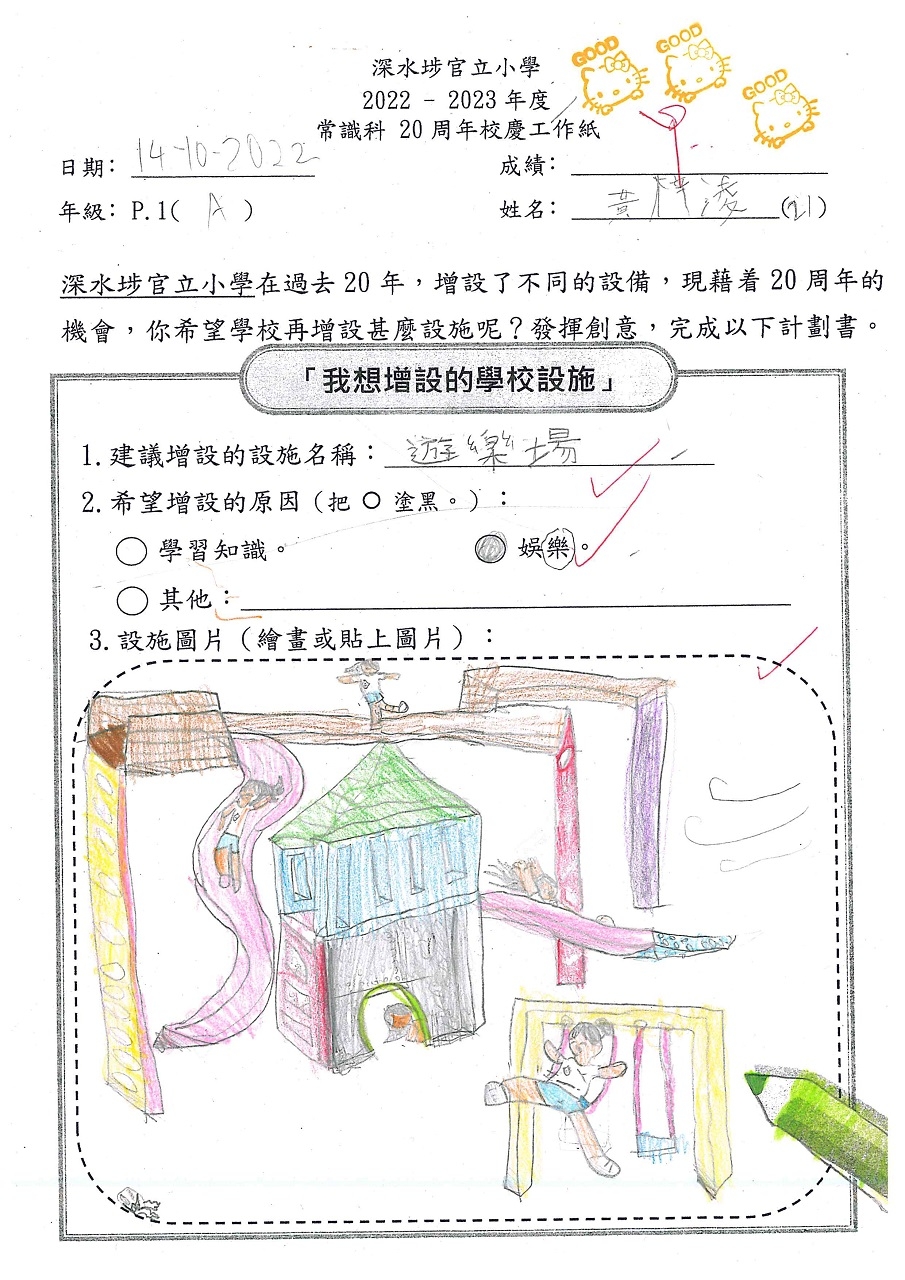 深水埗官立小學
2022 - 2023 年度
常識科 20 周年校慶工作紙
GOOD GOOD GOOD
日期： 14-10-2022 成績：
年級：P.1( A ) 姓名： 黃 凌 (21)
深水埗官立小學在過去 20 年，增設了不同的設備，現藉着 20 周年的
機會，你希望學校再增設甚麼設施呢？發揮創意，完成以下計劃書。
「我想增設的學校設施」
1. 建議增設的設施名稱： 遊樂場
2. 希望增設的原因（把 ○ 塗黑。）：
學習知識。 娛樂。
其他：
3. 設施圖片（繪畫或貼上圖片）：